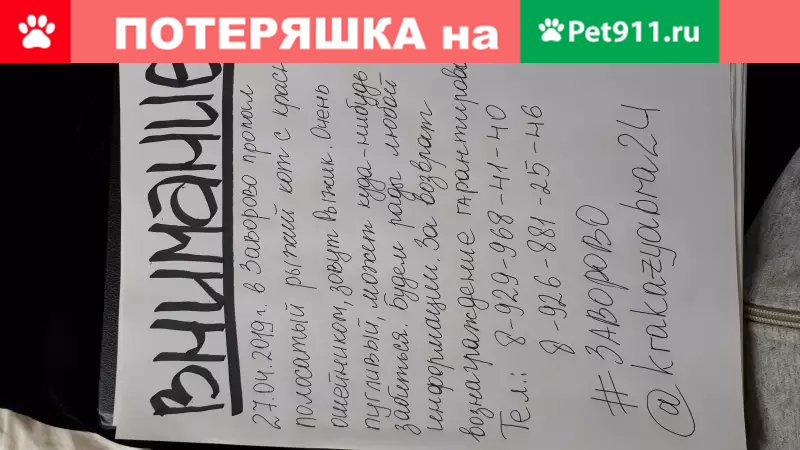 ПОТЕРЯШКА на
Pet911.ru
ВНИМАНИЕ
27.04.2019г. в Заворово пропал
полосатый рыжий кот с красн
ошейником, зовут Рыжик. Очень
пугливый, может куда-нибудь
забиться. Будем рады любой
информации. За возврат
вознаграждение гарантирова
Тел.: 8-929-968-41-40
8-926-881-25-46
#ЗАВОРОВО
@krakazyabra24